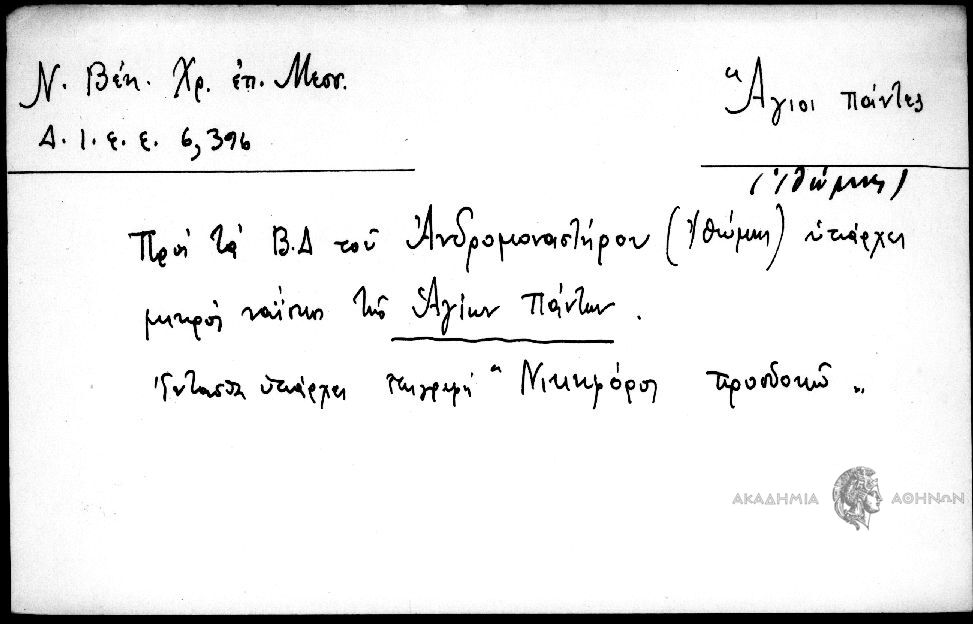 Ν. Βέη. Χρ. ἐπ. Μεσσ.
Δ. Ι. Ε. Ε. 6, 396
Ἅγιοι Πάντες
(Ἰθώμης)
Πρὸς τὰ Β.Δ τοῦ Ἀνδρομοναστήρου (Ἰθώμης) ὑπάρχει
μικρὸς ναΐσκος τῶν Ἁγίων Πάντων.
ὑπάρχει "Νικηφόρος προσδοκῶ"
ΑΚΑΔΗΜΙΑ ΑΘΗΝΩΝ